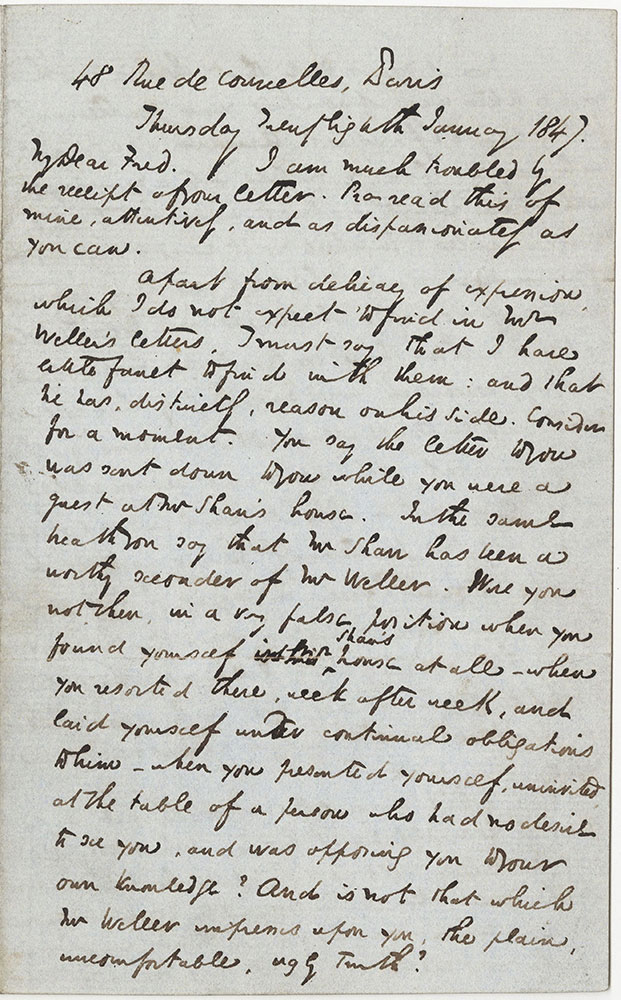 48 Rue de Courcelles, Paris
Thursday Twentyeighth January 1847.
My Dear Fred. I am much troubled by
the receipt of your letter. Pray read this of
mine, attentively, and as dispassionately as
you can.
Apart from delicacy of expression
which I do not expect to find in Mr
Weller's letters, I must say that I have
little fault to find with them: and that
he has, distinctly, reason on his side. Consider
for a moment. You say the letter to you
was sent down to you while you were a
guest at Mr Shaw's house. In the same
breath you say that Mr Shaw has been a
worthy seconder of Mr Weller. Were you
not then, in a very false position when you
found yourself in Mr Shaw's house at all – when
you resorted there, week after week, and
laid yourself under continual obligations
to him – when you presented yourself, uninvited
at the table of a person who had no desire
to see you, and was opposing you to your
own knowledge? And is not that which
Mr Weller impresses upon you, the plain,
uncomfortable, ugly Truth?